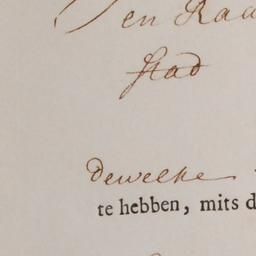 en Raa
stad
dewelke
te hebben, mits d